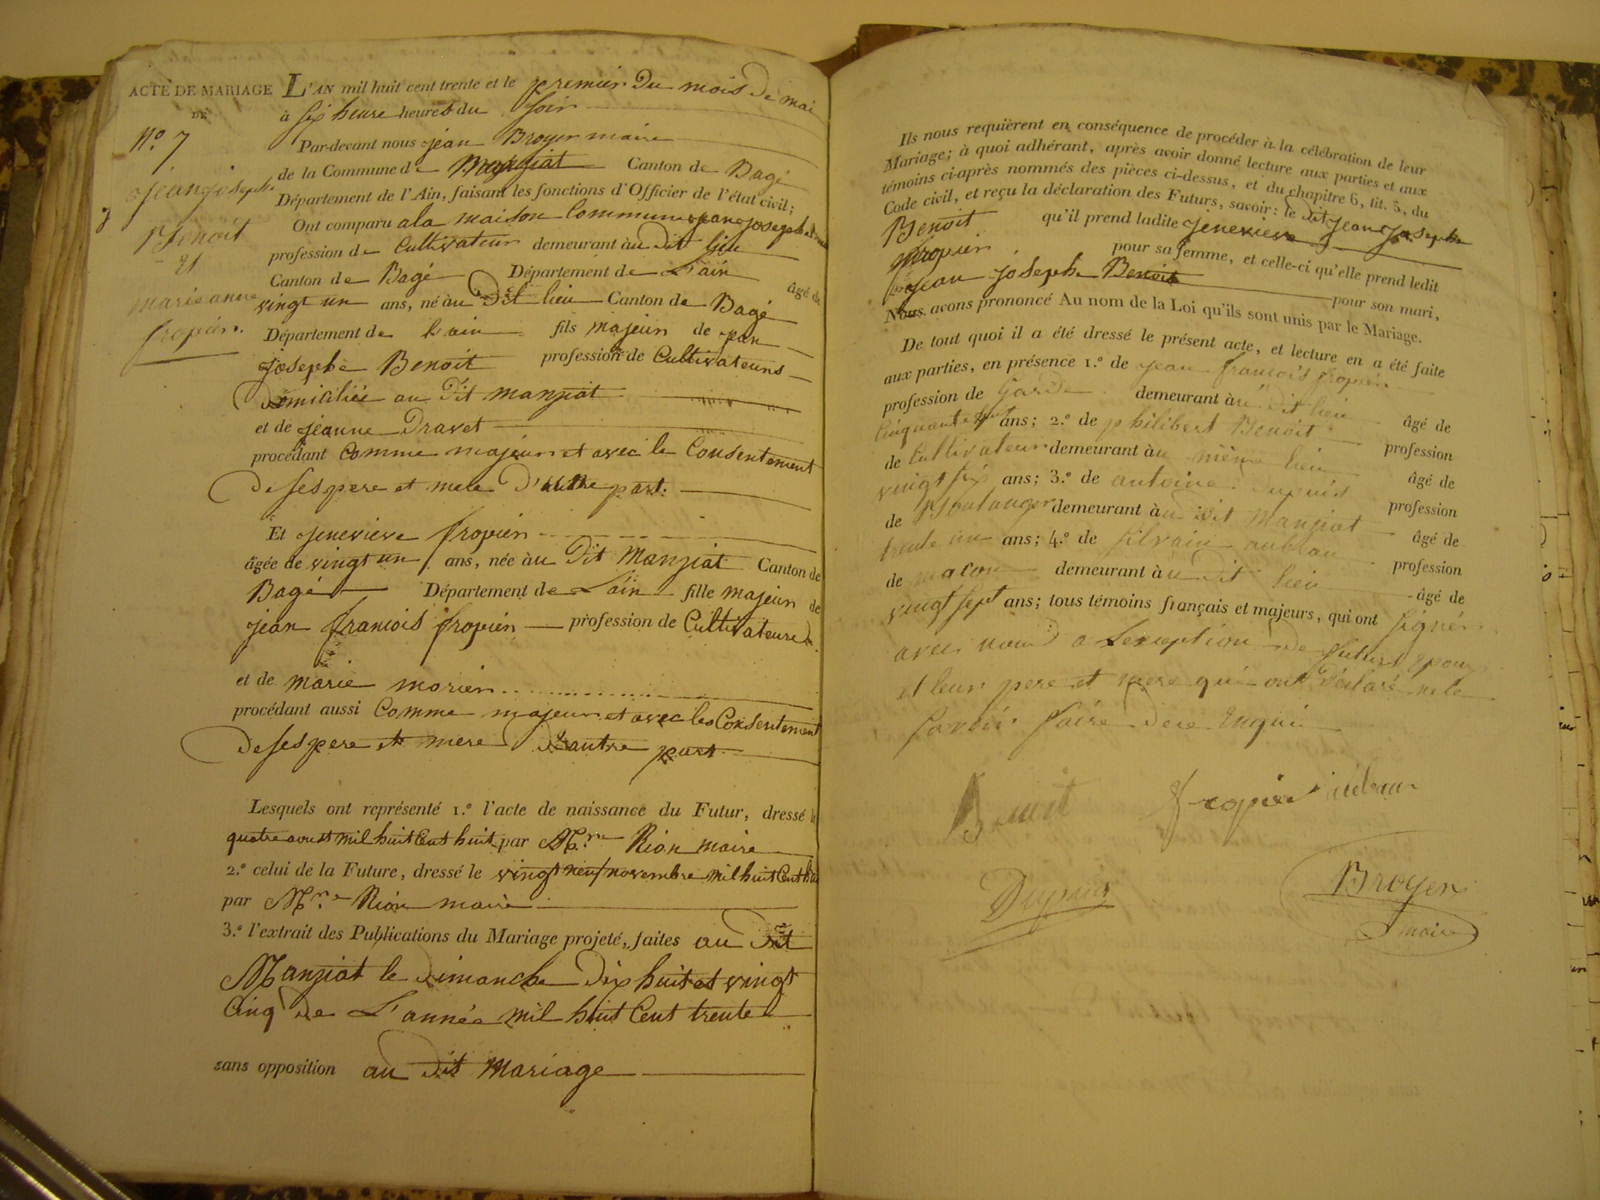 ACTE DE MARIAGE L'AN mil huit cent trente et le premier du mois de mai
DE
à six heure heures du soir
No. 7
Par-devant nous jean Broyer maire
de la Commune de Manziat Canton de Bagé
jean joseph
Département de l'Ain, faisant les fonctions d'Officier de l'état civil;
Benoit
Ont comparu a la maison Commune jean joseph
et
profession de Cultivateur demeurant au dit lieu
Canton de Bagé Département de L'ain âgé de
marie anne
vingt un ans, né au dit lieu Canton de Bagé
fropier.
Département de L'ain fils majeur de jean
josephe Benoit profession de Cultivateurs
domiciliée au dit manziat
et de jeanne Dravet
procédant Comme majeur et avec le Consentement
de ses pere et mere d'autre part.
Et jenevieve fropier
âgée de vingt un ans, née au dit Manziat Canton de
Bagé Département de L'ain fille majeur de
jean francois fropier profession de Cultivateurs
et de marie morier
procédant aussi Comme majeur et avec les Consentement
de ses pere et mere d'autre part
Lesquels ont représenté 1.º l'acte de naissance du Futur, dressé le
quatre aoust mil huit Cent huit par Mr. Rion maire
2.º celui de la Future, dressé le vingt neuf novembre mil huit Cent huit
par Mr. Rion maire
3.º l'extrait des Publications du Mariage projeté, faites au dit
Manziat le dimanche dix huit et vingt
Cinq de L'année mil huit Cent trente
sans opposition au dit mariage
Ils nous requièrent en conséquence de procéder à la célébration de leur
Mariage; à quoi adhérant, après avoir donné lecture aux parties et aux
témoins ci-après nommés des pièces ci-dessus, et du chapitre 6, tit. 5, du
Code civil, et reçu la déclaration des Futurs, savoir: le dit jean josephe
Benoit qu'il prend ladite jenevieve
fropier pour sa femme, et celle-ci qu'elle prend ledit
jean josephe Benoit pour son mari,
Nous avons prononcé Au nom de la Loi qu'ils sont unis par le Mariage.
De tout quoi il a été dressé le présent acte, et lecture en a été faite
aux parties, en présence 1.º de jean francois fropier
profession de garde demeurant à dit lieu âgé de
Cinquante ans; 2.º de philibert Benoit profession
de Cultivateur demeurant au même lieu âgé de
vingt six ans; 3.º de antoine Dupuis profession
de Boulanger demeurant au dit Manziat âgé de
trente un ans; 4.º de silvain aubeau profession
de maçon demeurant au dit lieu âgé de
vingt sept ans; tous témoins français et majeurs, qui ont signér
avec nous a L'exception de futurs epoux
et leur pere et mere qui ont déclaré ne le
savoir faire de ce Enquis
Benoit fropier aubeau
Dupuis Broyer
maire